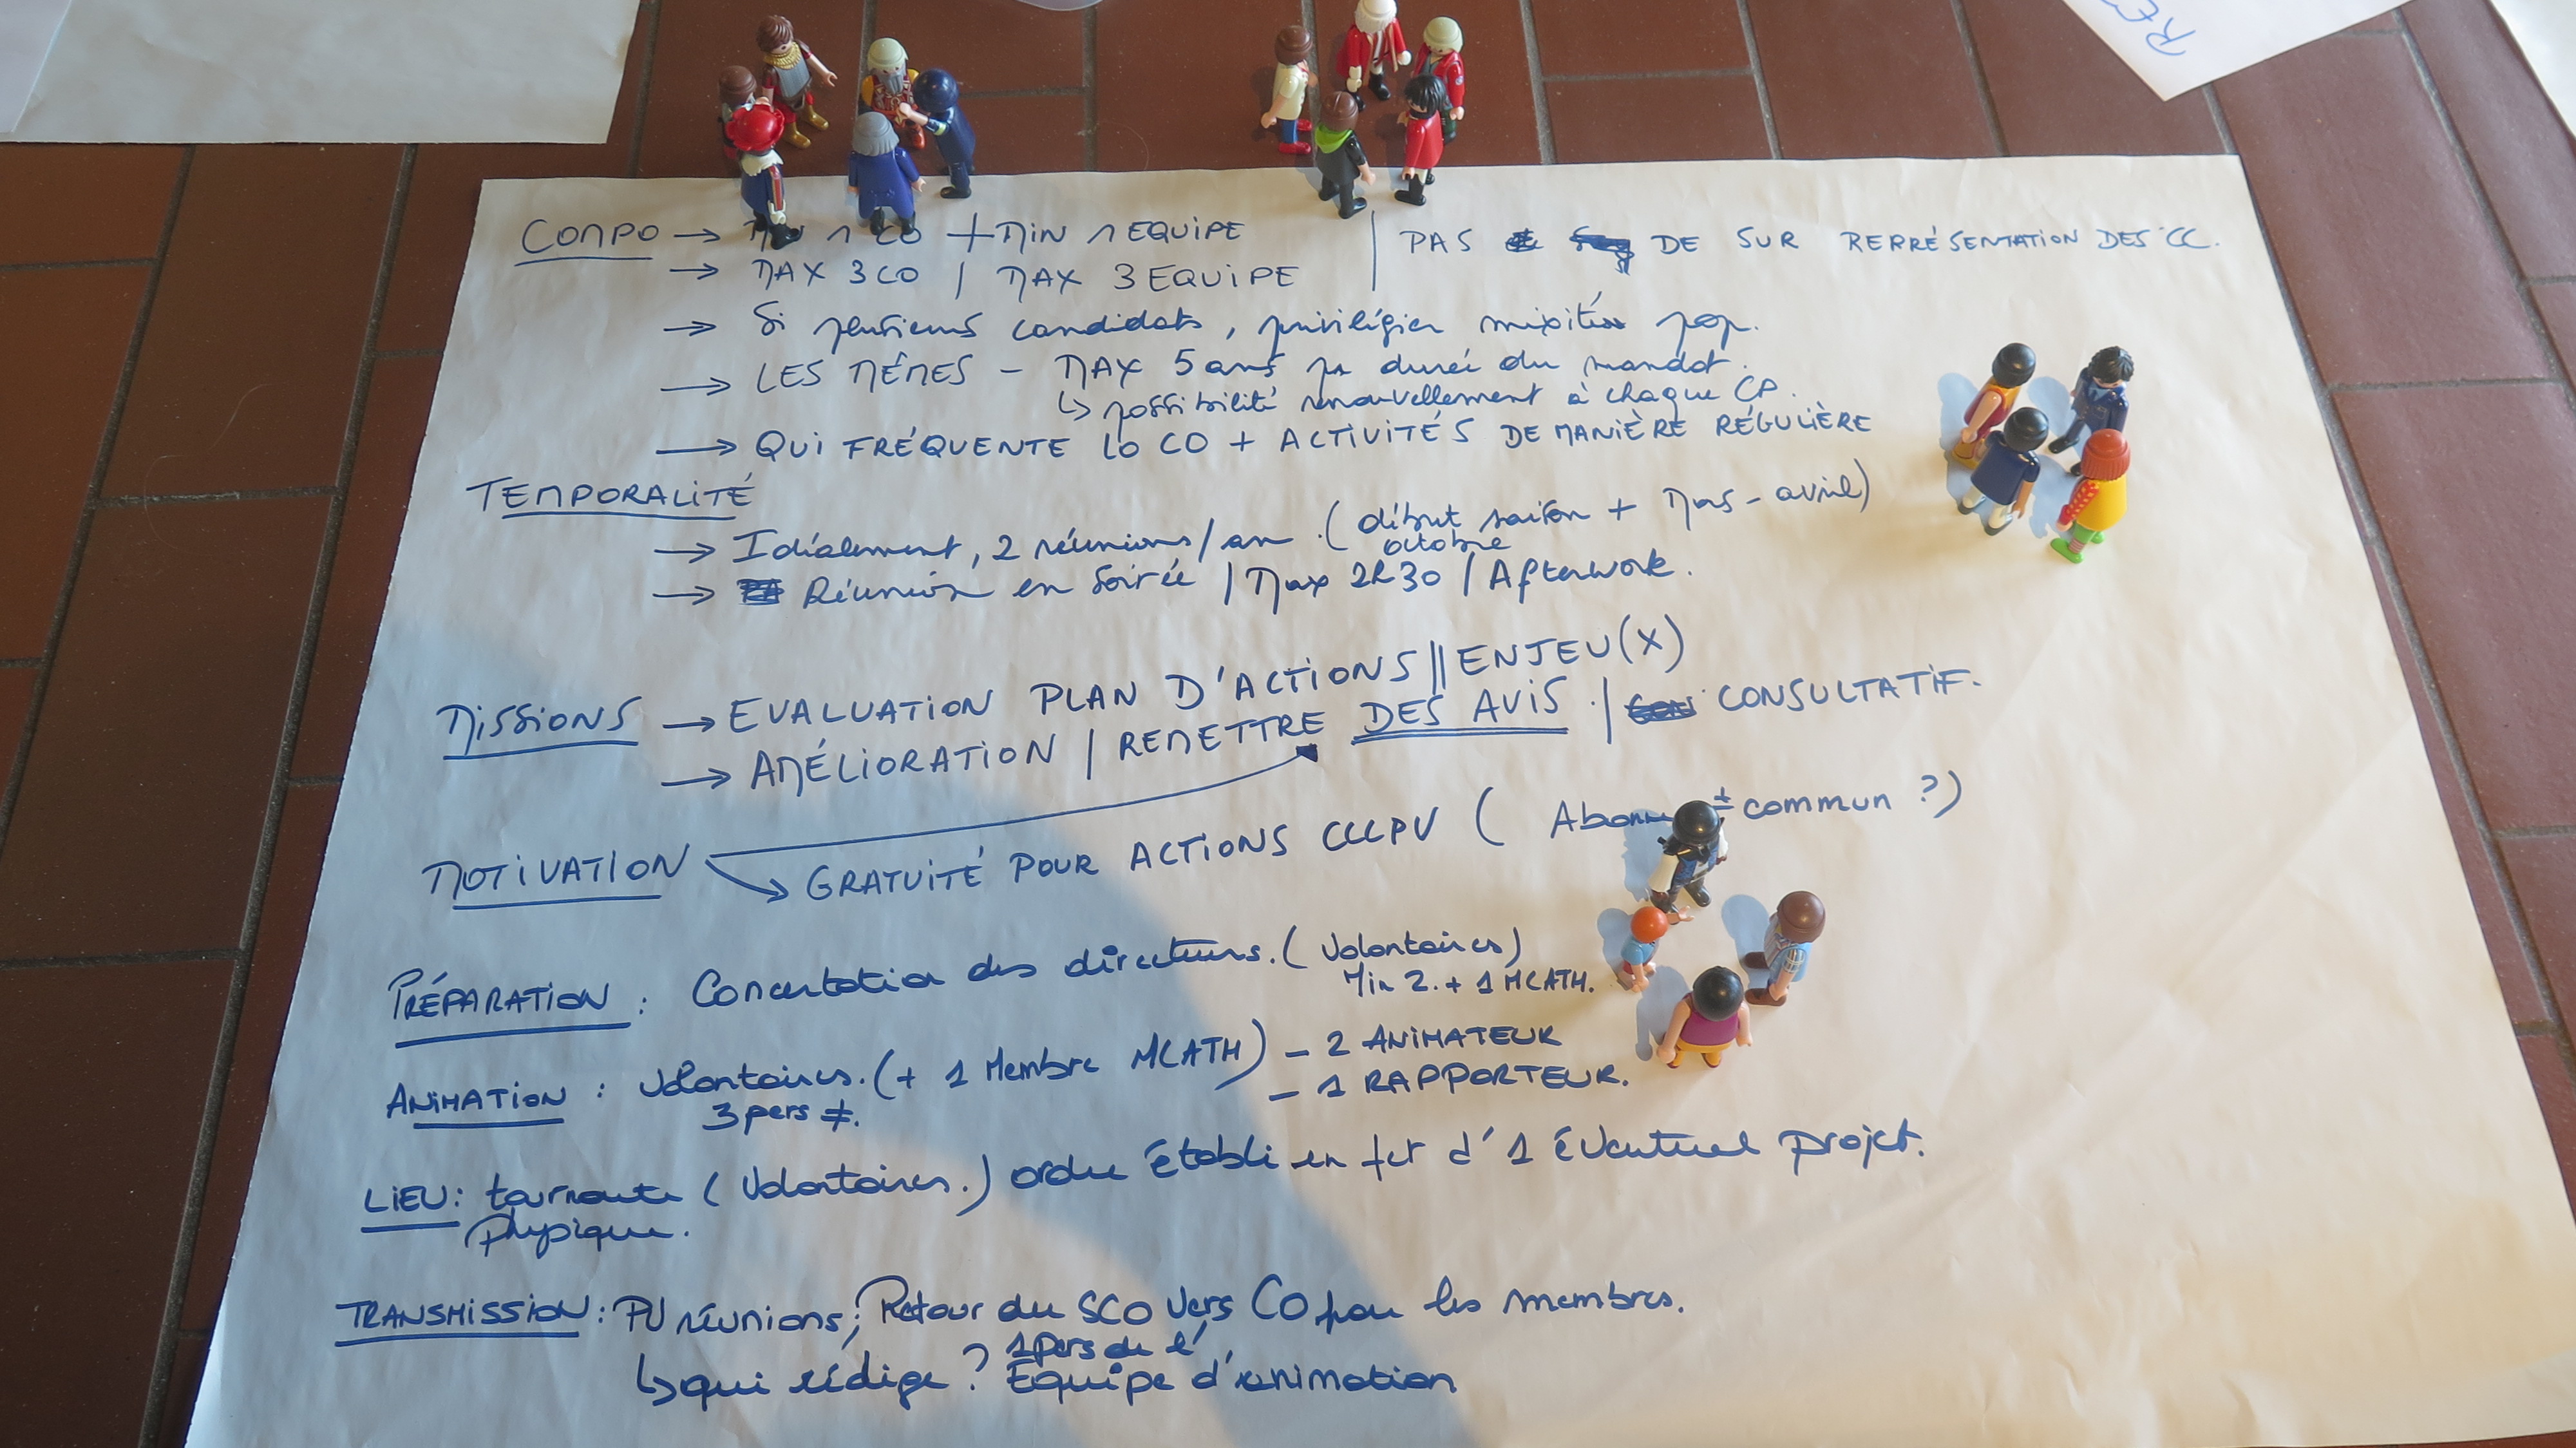 RE
COMPO → MIN 1 CO + MIN 1 EQUIPE | PAS DE SUR REPRÉSENTATION DES CC.
→ MAX 3 CO / MAX 3 EQUIPE
→ Si plusieurs candidats, privilégier mixité pop.
→ LES MÊMES - MAX 5 ans durée du mandat.
↳ possibilité renouvellement à chaque CP.
→ QUI FRÉQUENTE LO CO + ACTIVITÉS DE MANIÈRE RÉGULIÈRE
TEMPORALITÉ
→ Idéalement, 2 réunions/an. (début saison + Mars-avril)
octobre
→ Réunion en soirée / Max 2h30 / Afterwork.
MISSIONS → EVALUATION PLAN D'ACTIONS || ENJEU(X)
→ AMÉLIORATION / REMETTRE DES AVIS. | CONSULTATIF.
MOTIVATION → GRATUITÉ POUR ACTIONS CCCPV ( commun ?)
PRÉPARATION : Concertation des directeurs. (Volontaires)
Min 2. + 1 MCATH.
ANIMATION : Volontaires. (+ 1 Membre MCATH) - 2 ANIMATEUR
3 pers ≠. - 1 RAPPORTEUR.
LIEU : tournante (Volontaires.) ordre établi en fct d'1 éventuel projet.
Physique.
TRANSMISSION : PV réunions ; Retour du SCO vers CO par les membres.
↳ qui rédige ? 1 pers de l'
Equipe d'animation